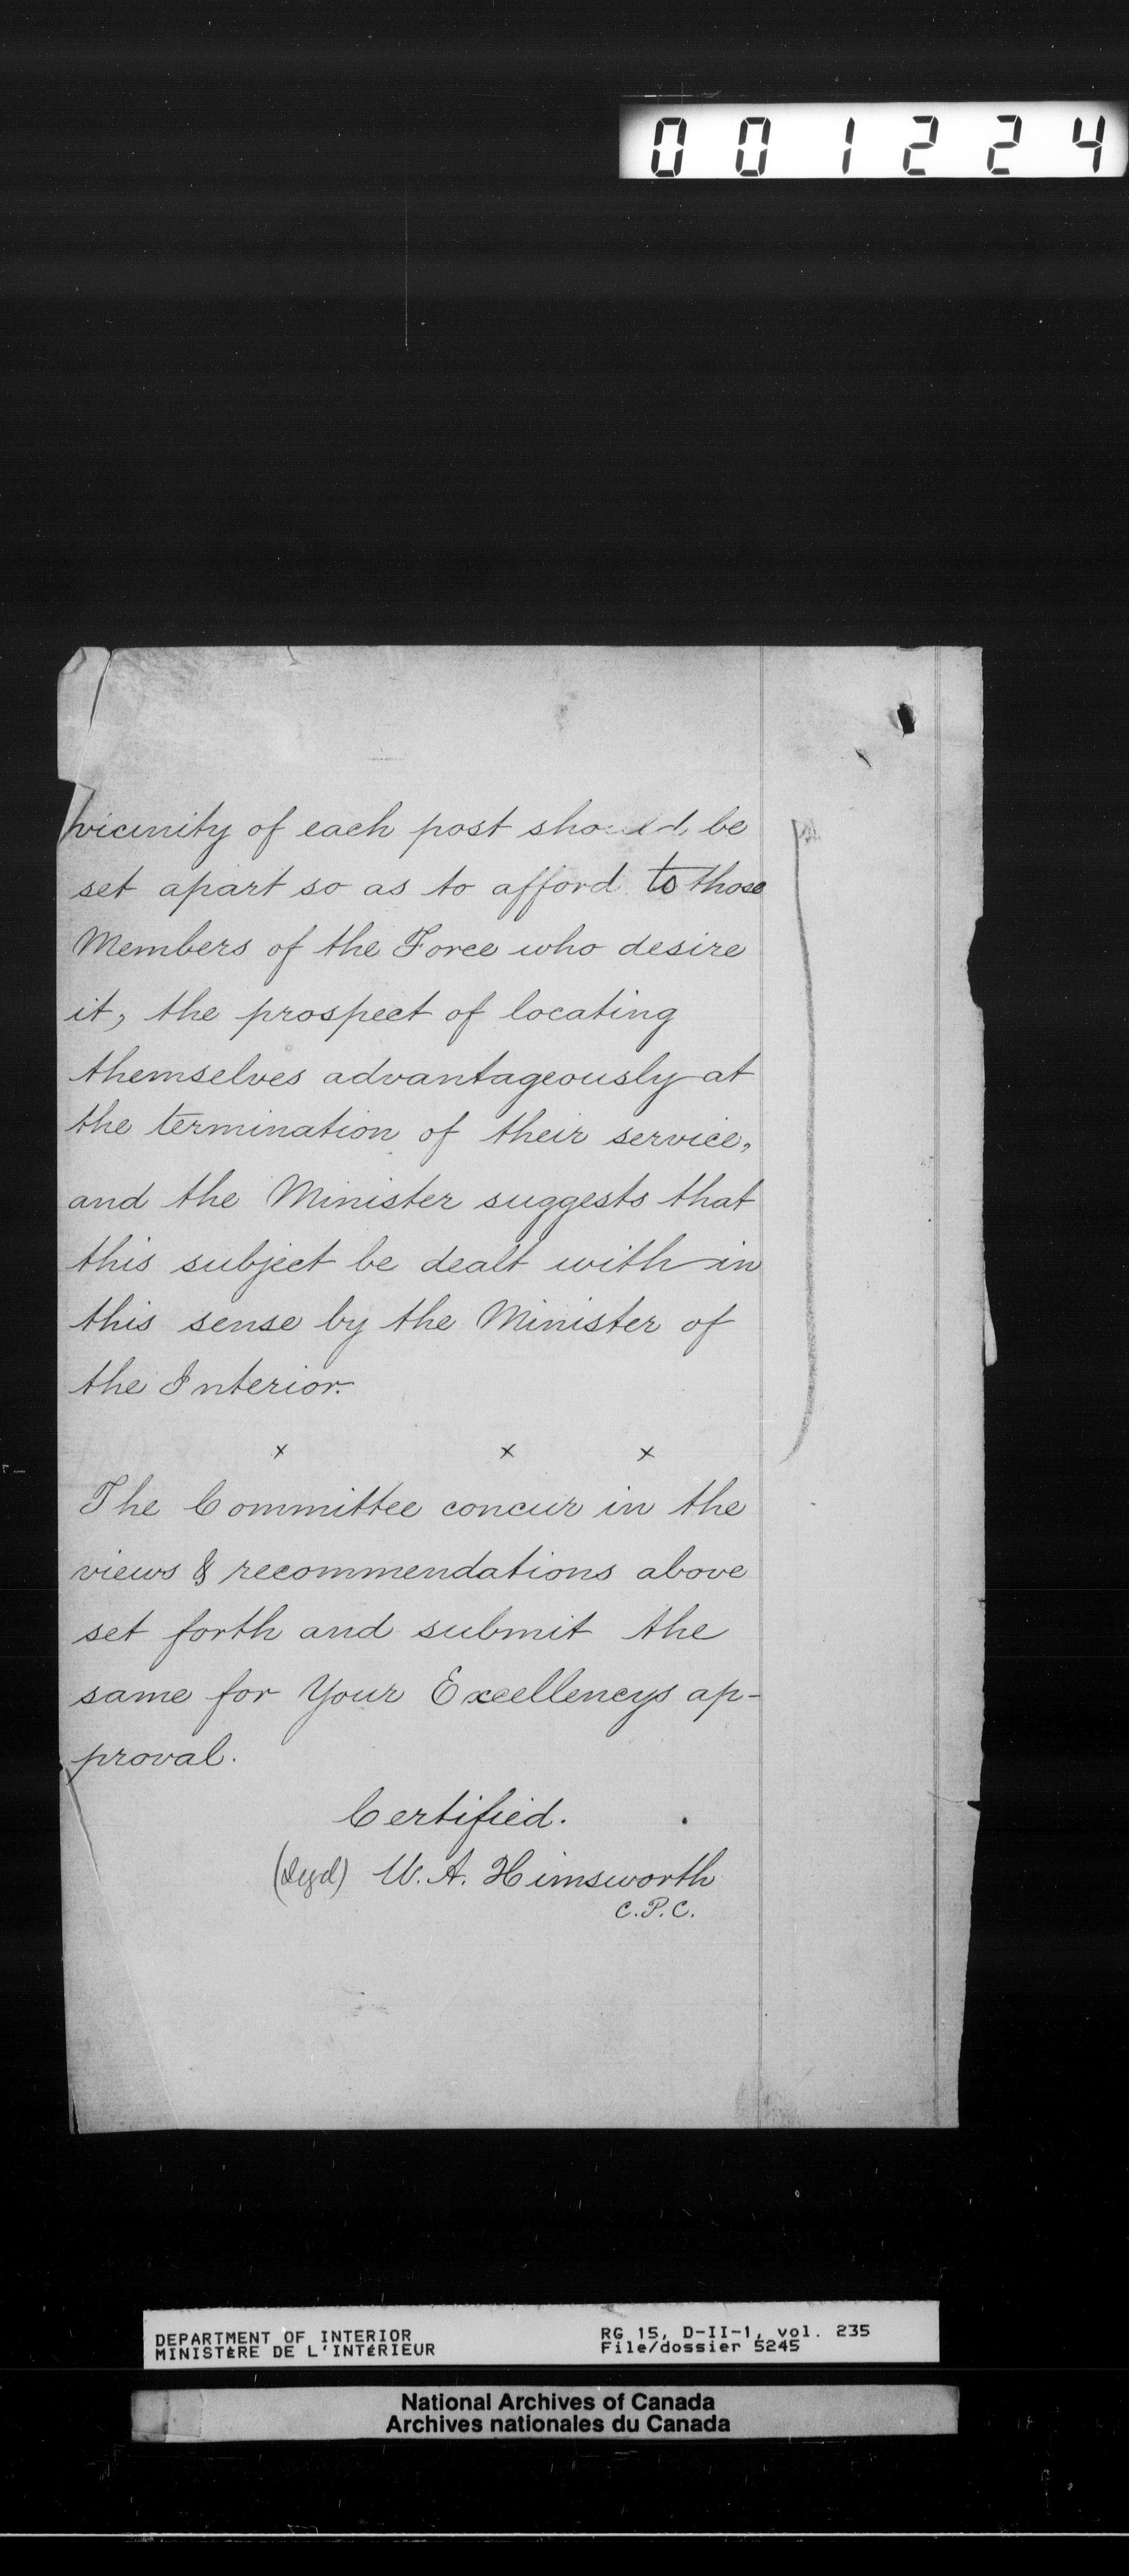 001224
vicinity of each post should be
set apart so as to afford to those
Members of the Force who desire
it, the prospect of locating
themselves advantageously at
the termination of their service,
and the Minister suggests that
this subject be dealt with in
this sense by the Minister of
the Interior.
x x x
The Committee concur in the
views & recommendations above
set forth and submit the
same for Your Excellencys ap-
proval.
Certified.
(Sgd) W. A. Himsworth
C.P.C.
DEPARTMENT OF INTERIOR RG 15, D-II-1, vol. 235
MINISTÈRE DE L'INTÉRIEUR File/dossier 5245
National Archives of Canada
Archives nationales du Canada